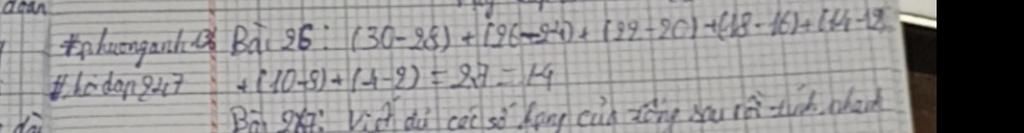 đoan
#phuonganh Bài 26: (30-28) + (26-24) + (22-20) + (18-16) + (14-12)
#hadan247 + (10-8) + (4-2) = 2.7 = 14
Bài 27: Viết đủ các số hạng của tổng sau rồi tính nhanh